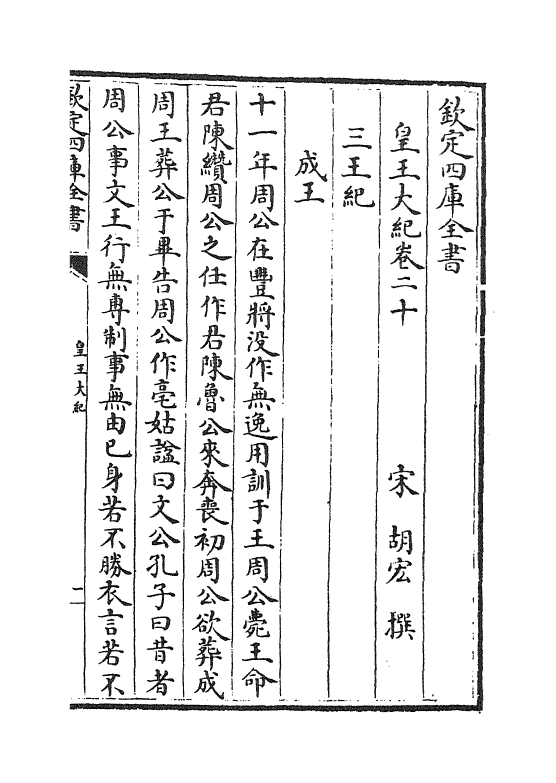 欽定四庫全書
皇王大紀卷二十
宋 胡宏 撰
三王紀
成王
十一年周公在豐將没作無逸用訓于王周公薨王命
君陳纘周公之任作君陳魯公來奔喪初周公欲葬成
周王葬公于畢告周公作亳姑諡曰文公孔子曰昔者
周公事文王行無專制事無由已身若不勝衣言若不
欽定四庫全書
皇王大紀
二